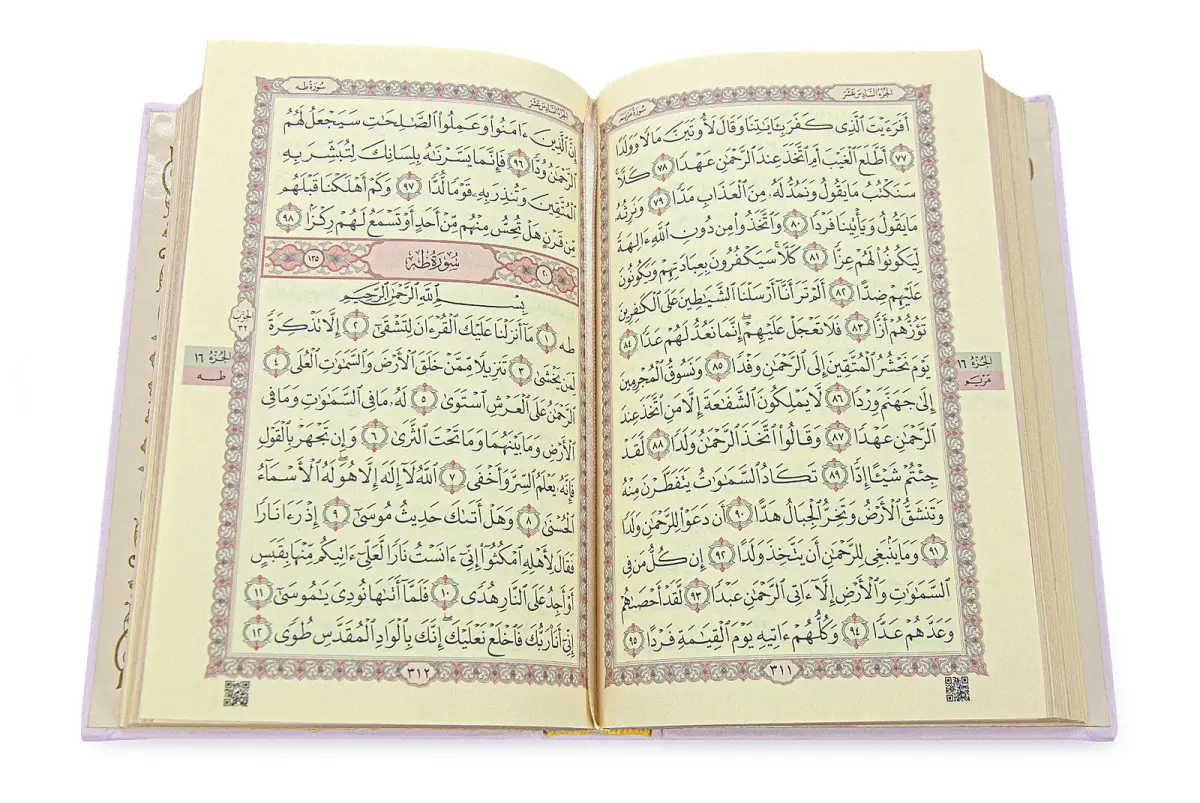 سُورَةُ مَرْيَم
الجُزْءُ السَّادِسَ عَشَرَ
أَفَرَءَيْتَ ٱلَّذِى كَفَرَ بِـَٔايَـٰتِنَا وَقَالَ لَأُوتَيَنَّ مَالًا وَوَلَدًا
٧٧ أَطَّلَعَ ٱلْغَيْبَ أَمِ ٱتَّخَذَ عِندَ ٱلرَّحْمَـٰنِ عَهْدًا ٧٨ كَلَّا
سَنَكْتُبُ مَا يَقُولُ وَنَمُدُّ لَهُۥ مِنَ ٱلْعَذَابِ مَدًّا ٧٩ وَنَرِثُهُۥ
مَا يَقُولُ وَيَأْتِينَا فَرْدًا ٨٠ وَٱتَّخَذُوا۟ مِن دُونِ ٱللَّهِ ءَالِهَةً
لِّيَكُونُوا۟ لَهُمْ عِزًّا ٨١ كَلَّا سَيَكْفُرُونَ بِعِبَادَتِهِمْ وَيَكُونُونَ
عَلَيْهِمْ ضِدًّا ٨٢ أَلَمْ تَرَ أَنَّآ أَرْسَلْنَا ٱلشَّيَـٰطِينَ عَلَى ٱلْكَـٰفِرِينَ
تَؤُزُّهُمْ أَزًّا ٨٣ فَلَا تَعْجَلْ عَلَيْهِمْ إِنَّمَا نَعُدُّ لَهُمْ عَدًّا ٨٤
يَوْمَ نَحْشُرُ ٱلْمُتَّقِينَ إِلَى ٱلرَّحْمَـٰنِ وَفْدًا ٨٥ وَنَسُوقُ ٱلْمُجْرِمِينَ
إِلَىٰ جَهَنَّمَ وِرْدًا ٨٦ لَّا يَمْلِكُونَ ٱلشَّفَـٰعَةَ إِلَّا مَنِ ٱتَّخَذَ عِندَ
ٱلرَّحْمَـٰنِ عَهْدًا ٨٧ وَقَالُوا۟ ٱتَّخَذَ ٱلرَّحْمَـٰنُ وَلَدًا ٨٨ لَّقَدْ
جِئْتُمْ شَيْـًٔا إِدًّا ٨٩ تَكَادُ ٱلسَّمَـٰوَٰتُ يَتَفَطَّرْنَ مِنْهُ
وَتَنشَقُّ ٱلْأَرْضُ وَتَخِرُّ ٱلْجِبَالُ هَدًّا ٩٠ أَن دَعَوْا۟ لِلرَّحْمَـٰنِ وَلَدًا
٩١ وَمَا يَنۢبَغِى لِلرَّحْمَـٰنِ أَن يَتَّخِذَ وَلَدًا ٩٢ إِن كُلُّ مَن فِى
ٱلسَّمَـٰوَٰتِ وَٱلْأَرْضِ إِلَّآ ءَاتِى ٱلرَّحْمَـٰنِ عَبْدًا ٩٣ لَّقَدْ أَحْصَىٰهُمْ
وَعَدَّهُمْ عَدًّا ٩٤ وَكُلُّهُمْ ءَاتِيهِ يَوْمَ ٱلْقِيَـٰمَةِ فَرْدًا ٩٥
٣١١
الجُزْءُ ١٦
مَرْيَم
الجُزْءُ السَّادِسَ عَشَرَ
سُورَةُ طه
إِنَّ ٱلَّذِينَ ءَامَنُوا۟ وَعَمِلُوا۟ ٱلصَّـٰلِحَـٰتِ سَيَجْعَلُ لَهُمُ
ٱلرَّحْمَـٰنُ وُدًّا ٩٦ فَإِنَّمَا يَسَّرْنَـٰهُ بِلِسَانِكَ لِتُبَشِّرَ بِهِ
ٱلْمُتَّقِينَ وَتُنذِرَ بِهِۦ قَوْمًا لُّدًّا ٩٧ وَكَمْ أَهْلَكْنَا قَبْلَهُم
مِّن قَرْنٍ هَلْ تُحِسُّ مِنْهُم مِّنْ أَحَدٍ أَوْ تَسْمَعُ لَهُمْ رِكْزًۢا ٩٨
٢٠ سُورَةُ طه ١٣٥
بِسْمِ ٱللَّهِ ٱلرَّحْمَـٰنِ ٱلرَّحِيمِ
طه ١ مَآ أَنزَلْنَا عَلَيْكَ ٱلْقُرْءَانَ لِتَشْقَىٰٓ ٢ إِلَّا تَذْكِرَةً
لِّمَن يَخْشَىٰ ٣ تَنزِيلًا مِّمَّنْ خَلَقَ ٱلْأَرْضَ وَٱلسَّمَـٰوَٰتِ ٱلْعُلَى ٤
ٱلرَّحْمَـٰنُ عَلَى ٱلْعَرْشِ ٱسْتَوَىٰ ٥ لَهُۥ مَا فِى ٱلسَّمَـٰوَٰتِ وَمَا فِى
ٱلْأَرْضِ وَمَا بَيْنَهُمَا وَمَا تَحْتَ ٱلثَّرَىٰ ٦ وَإِن تَجْهَرْ بِٱلْقَوْلِ
فَإِنَّهُۥ يَعْلَمُ ٱلسِّرَّ وَأَخْفَى ٧ ٱللَّهُ لَآ إِلَـٰهَ إِلَّا هُوَ لَهُ ٱلْأَسْمَآءُ
ٱلْحُسْنَىٰ ٨ وَهَلْ أَتَىٰكَ حَدِيثُ مُوسَىٰٓ ٩ إِذْ رَءَا نَارًا
فَقَالَ لِأَهْلِهِ ٱمْكُثُوٓا۟ إِنِّىٓ ءَانَسْتُ نَارًا لَّعَلِّىٓ ءَاتِيكُم مِّنْهَا بِقَبَسٍ
أَوْ أَجِدُ عَلَى ٱلنَّارِ هُدًى ١٠ فَلَمَّآ أَتَىٰهَا نُودِىَ يَـٰمُوسَىٰٓ ١١
إِنِّىٓ أَنَا۠ رَبُّكَ فَٱخْلَعْ نَعْلَيْكَ إِنَّكَ بِٱلْوَادِ ٱلْمُقَدَّسِ طُوًى ١٢
٣١٢
الحِزْب
٣٢
الجُزْءُ ١٦
طه